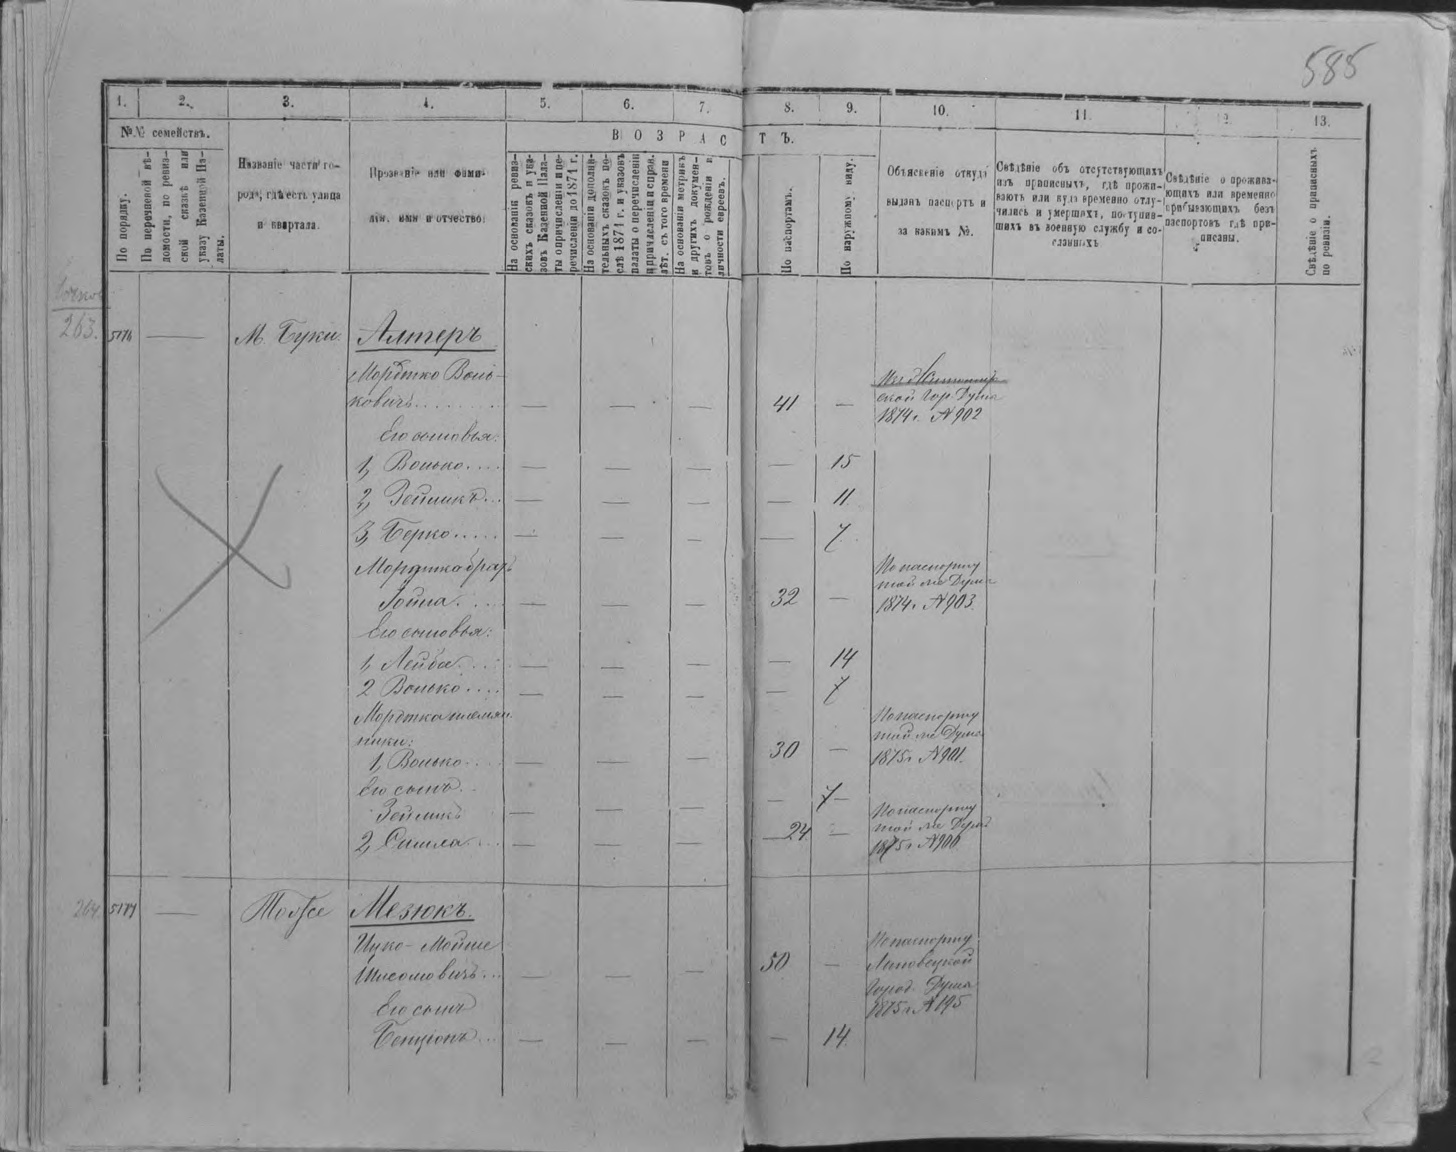 585
1. 2. 3. 4. 5. 6. 7. 8. 9. 10. 11. 12. 13.
№№ семействъ.
По порядку.
По перечневой вѣ-
домости, по ревиз-
ской сказкѣ или
указу Казенной Па-
латы.
Названіе части го-
рода, гдѣ есть улица
и квартала.
Прозваніе или фами-
лія, имя и отчество.
ВОЗРАСТЪ.
На основаніи ревиз-
скихъ сказокъ и ука-
зовъ Казенной Пала-
ты о причисленіи и пе-
речисленіи до 1871 г.
На основаніи дополни-
тельныхъ сказокъ по-
слѣ 1871 г. и указовъ
палаты о перечисленіи
и причисленіи и справ.
лѣт. съ того времени
На основаніи метрикъ
и другихъ докумен-
товъ о рожденіи и
личности евреевъ.
По паспортамъ.
По наружному виду.
Объясненіе откуда
выданъ паспортъ и
за какимъ №.
Свѣдѣніе объ отсутствующихъ
изъ приписныхъ, гдѣ прожи-
ваютъ или куда временно отлу-
чились и умершихъ, поступив-
шихъ въ военную службу и со-
сланныхъ
Свѣдѣніе о прожива-
ющихъ или временно
прибывающихъ безъ
паспортовъ гдѣ при-
писаны.
Свѣдѣніе о приписныхъ
по ревизіи.
263.
М. Буки Алтеръ
Мордко Воль-
ковичъ 41 —
ской Гор Думы
1874 г. № 902
Его сыновья:
1, Волько — 15
2, Зейликъ — 11
3, Берко — 7
Мордка братъ
Іойна 32 —
По паспорту
той же Думы
1874 г. № 903
Его сыновья:
1, Лейба — 14
2 Волько — 7
Мордка племян
ники:
1, Волько 30 —
По паспорту
той же Думы
1875 г. № 901.
Его сынъ
Зейликъ — 7
2, Сиома 24 —
По паспорту
той же Думы
1875 г. № 900
264.
Тоже Мезюкъ.
Ицко-Мойше
Шлеомовичъ 50 —
По паспорту
Липовецкой
Город Думы
1875 г. № 195
Его сынъ
Бенціонъ — 14